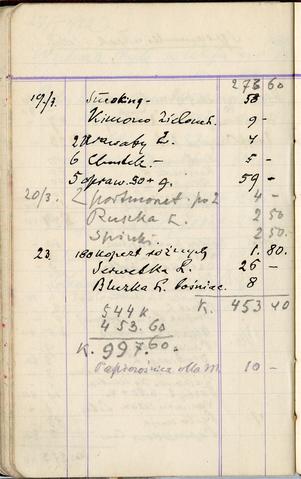 273 60
19/3. Smoking - 50
Kimono zielone. 9 -
2 Krawaty L. 4
6 Chustek - 5 -
5 opraw. 50 + 9. 59 -
20/3. 2 portmonet. po 2 4 -
Ruszka L. 2 50
Spinki. 2 50.
23. 180 kopert 1. 80.
Serwetka L. 26 -
Bluzka L. bośniac. 8
K. 453 40
544 K
453.60
K. 997.60.
Papierośnica dla M. 10 -